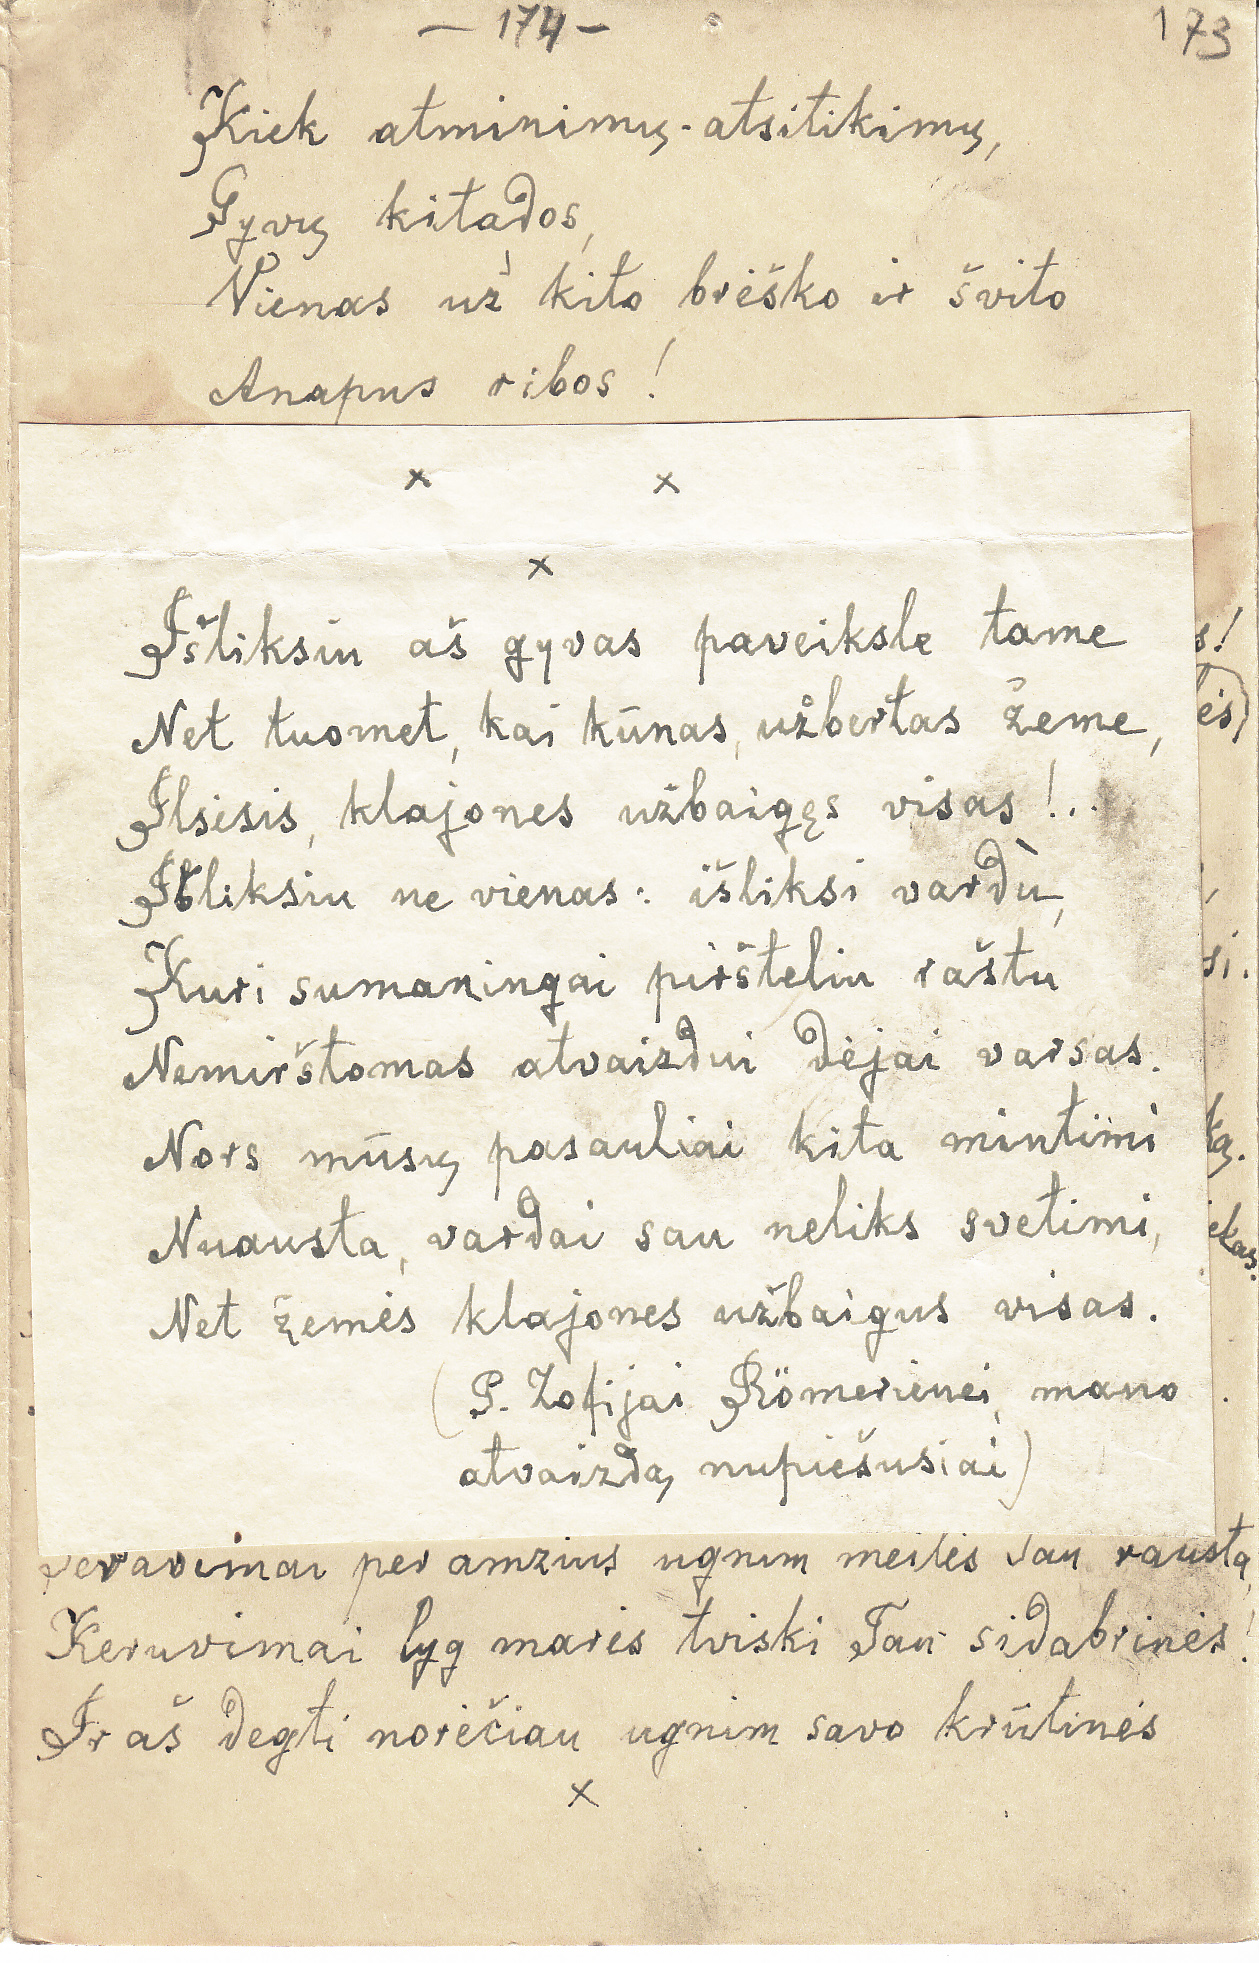 — 174 —
173
Kiek atminimų-atsitikimų,
Gyvų kitados,
Vienas už kito brėško ir švito
Anapus ribos!
x x
x
Išliksiu aš gyvas paveiksle tame
Net tuomet, kai kūnas, užbertas žeme,
Ilsėsis, klajones užbaigęs visas!..
Išliksiu ne vienas: išliksi vardù,
Kuri sumaningai piršteliu raštu
Nemirštomas atvaizdui dėjai varsas.
Nors mūsų pasauliai kita mintimi
Nuausta, vardai sau neliks svetimi,
Net žemės klajones užbaigus visas.
(P. Zofijai Römerienei, mano
atvaizdą nupiešusiai)
s!
ės)
si.
ką.
per amžius ugnim meilės Tau rausta,
Keruvimai lyg marės tviski Tau sidabrinės!
Ir aš degti norėčiau ugnim savo krūtinės
x